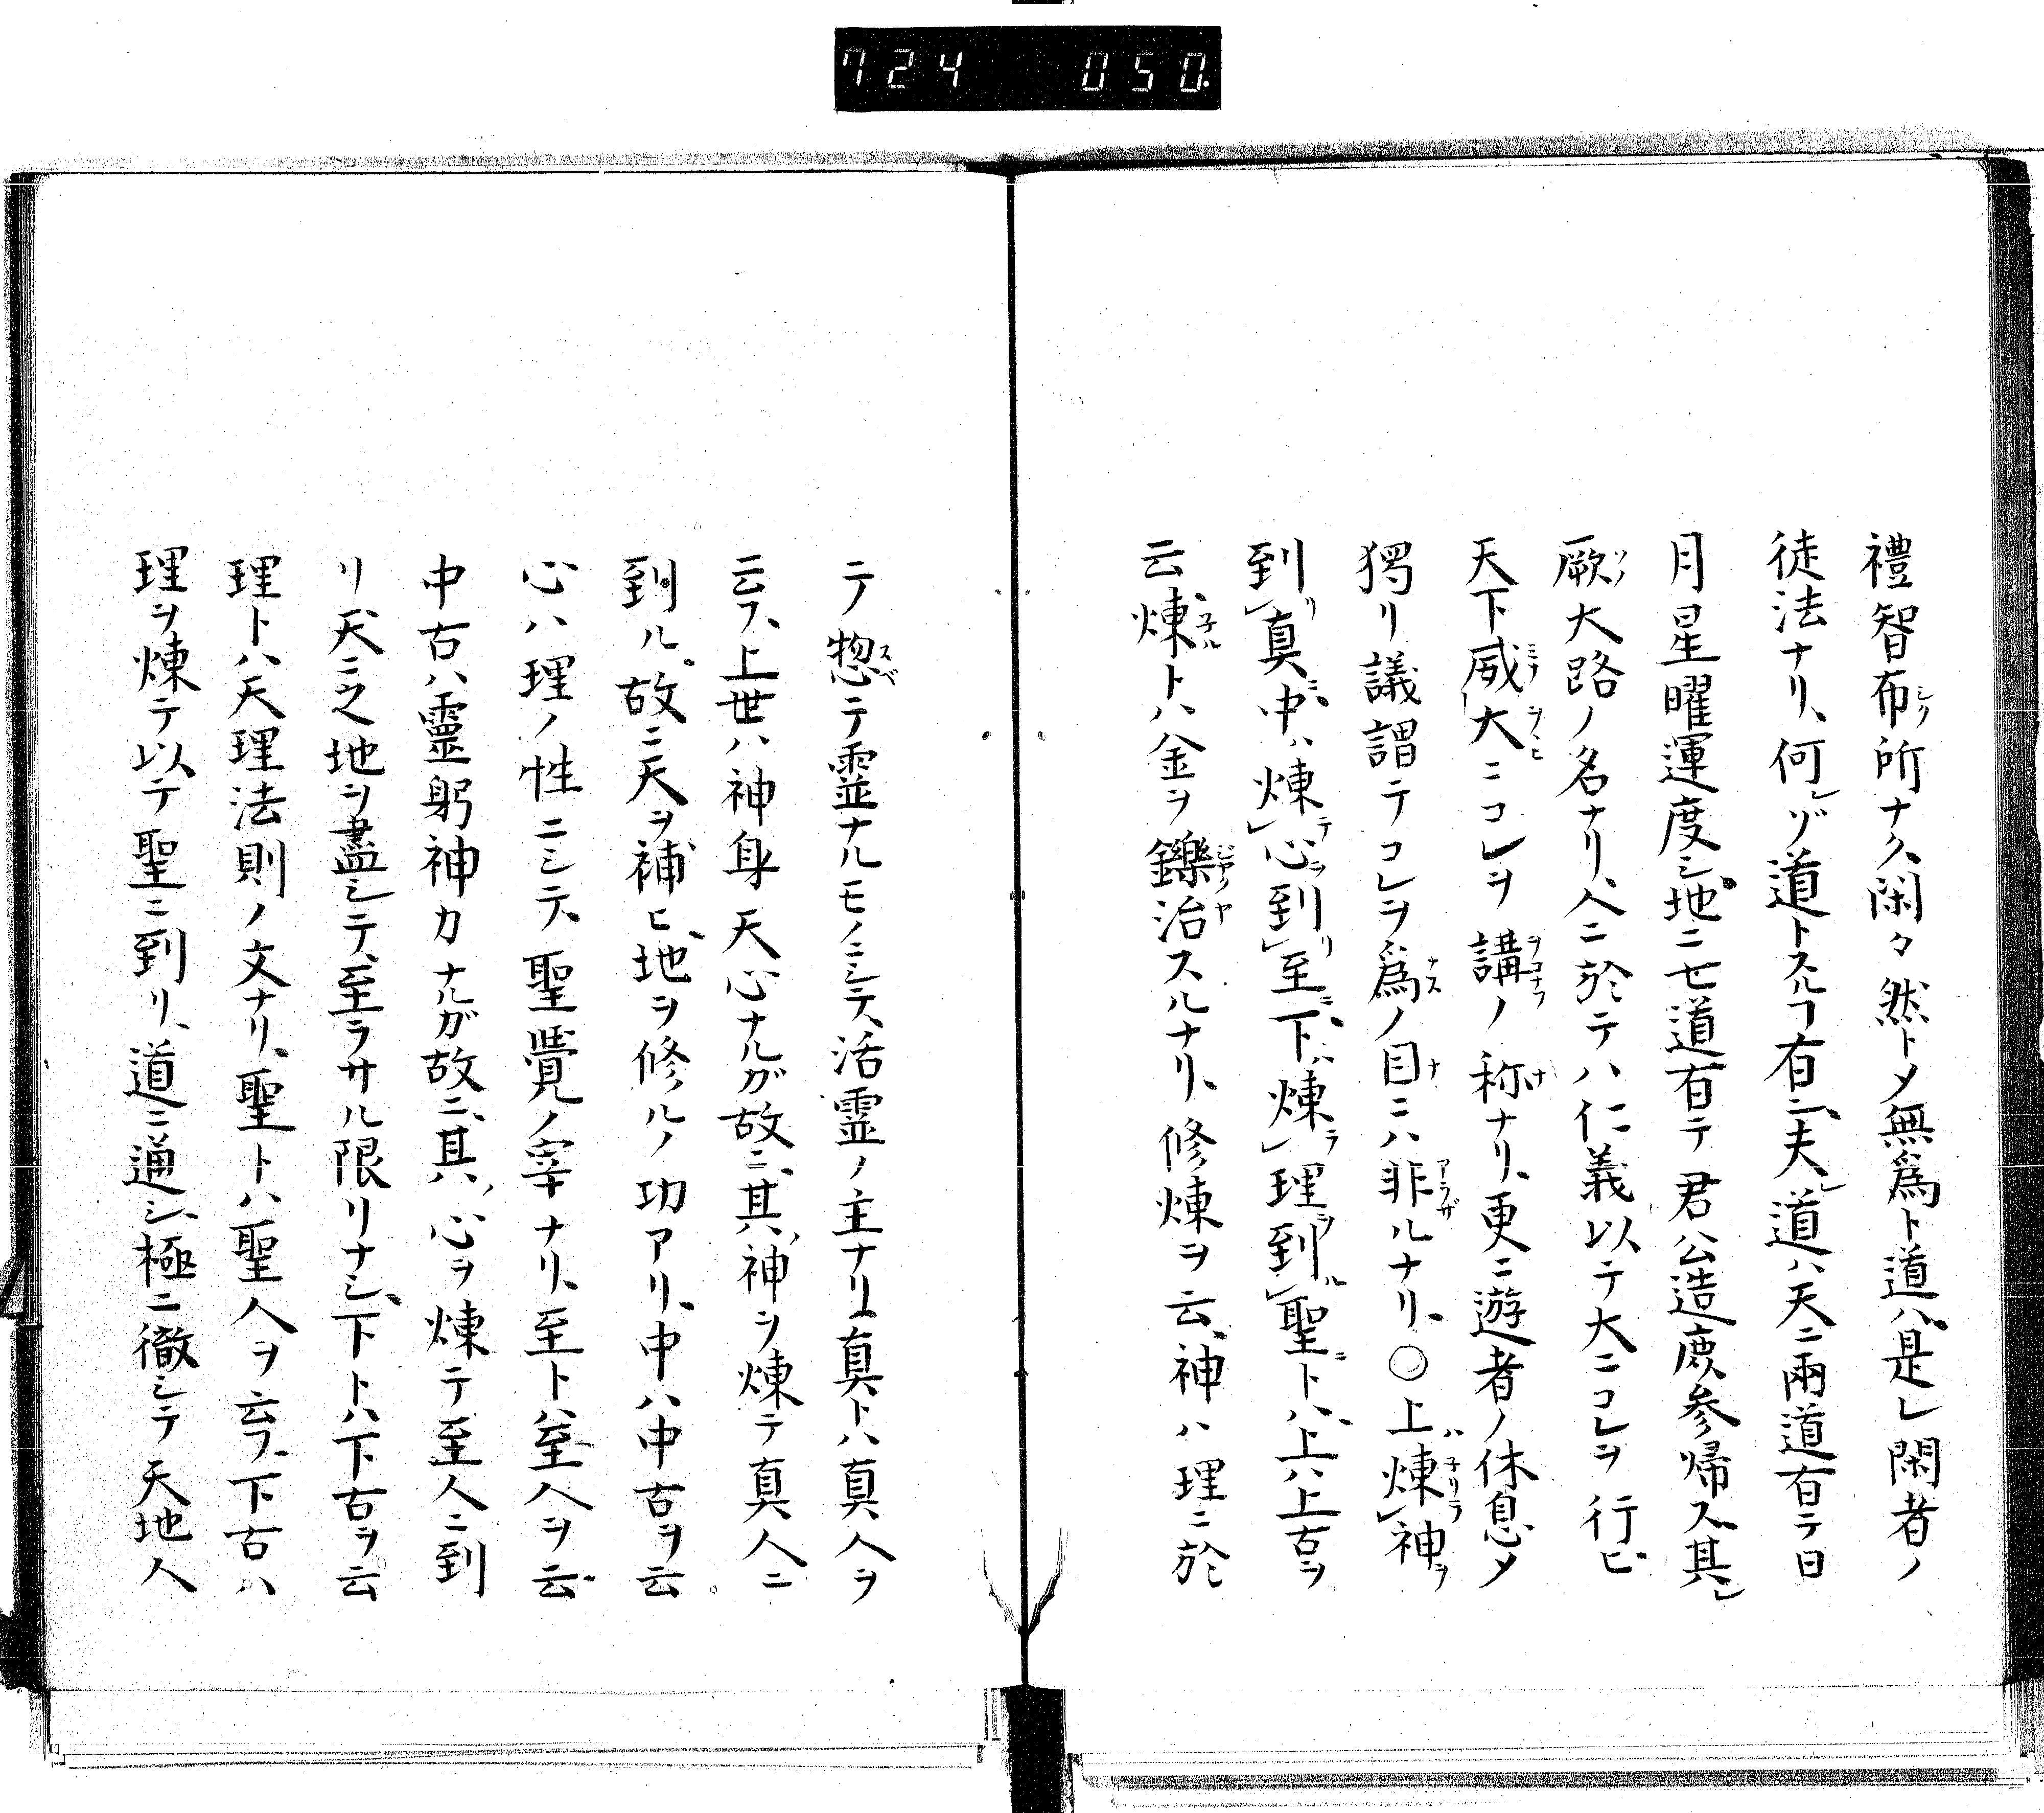 724 050.
禮智布所ナク、閑々然トメ無爲ト道ハ、是レ閑者ノ
徒法ナリ、何ゾ道トスルヿ有ニ、夫レ道ハ天ニ兩道有テ日
月星曜運度シ、地ニ七道有テ君公造鹿参帰ス、其レ
厥大路ノ名ナリ、人ニ於テハ仁義以テ大ニコレヲ行ビ
天下咸大ニコレヲ講ノ称ナリ、更ニ遊者ノ休息メ
獨リ議謂テコレヲ爲ノ目ニハ非ルナリ、○上煉神
到真、中ハ煉心到至、下ハ煉理到聖トハ、上ハ上古ヲ
云、煉トハ金ヲ鑠治スルナリ、修煉ヲ云、神ハ理ニ於
テ惣テ霊ナルモノニシテ、活霊ノ主ナリ、真トハ真人ヲ
云フ、上世ハ神身天心ナルガ故ニ、其ハ神ヲ煉テ真人ニ
到ル、故ニ天ヲ補ヒ、地ヲ修ルノ功アリ、中ハ中古ヲ云
心ハ理ノ性ニシテ、聖覺ノ宰ナリ、至トハ至人ヲ云
中古ハ靈躬神力ナルガ故ニ、其ハ心ヲ煉テ至人ニ到
リ天ニ之地ヲ盡シテ、至ラサル限リナシ、下トハ下古ヲ云
理トハ天理法則ノ文ナリ、聖トハ聖人ヲ云フ、下古ハ
理ヲ煉テ以テ聖ニ到リ、道ニ通シ、極ニ徹シテ天地人